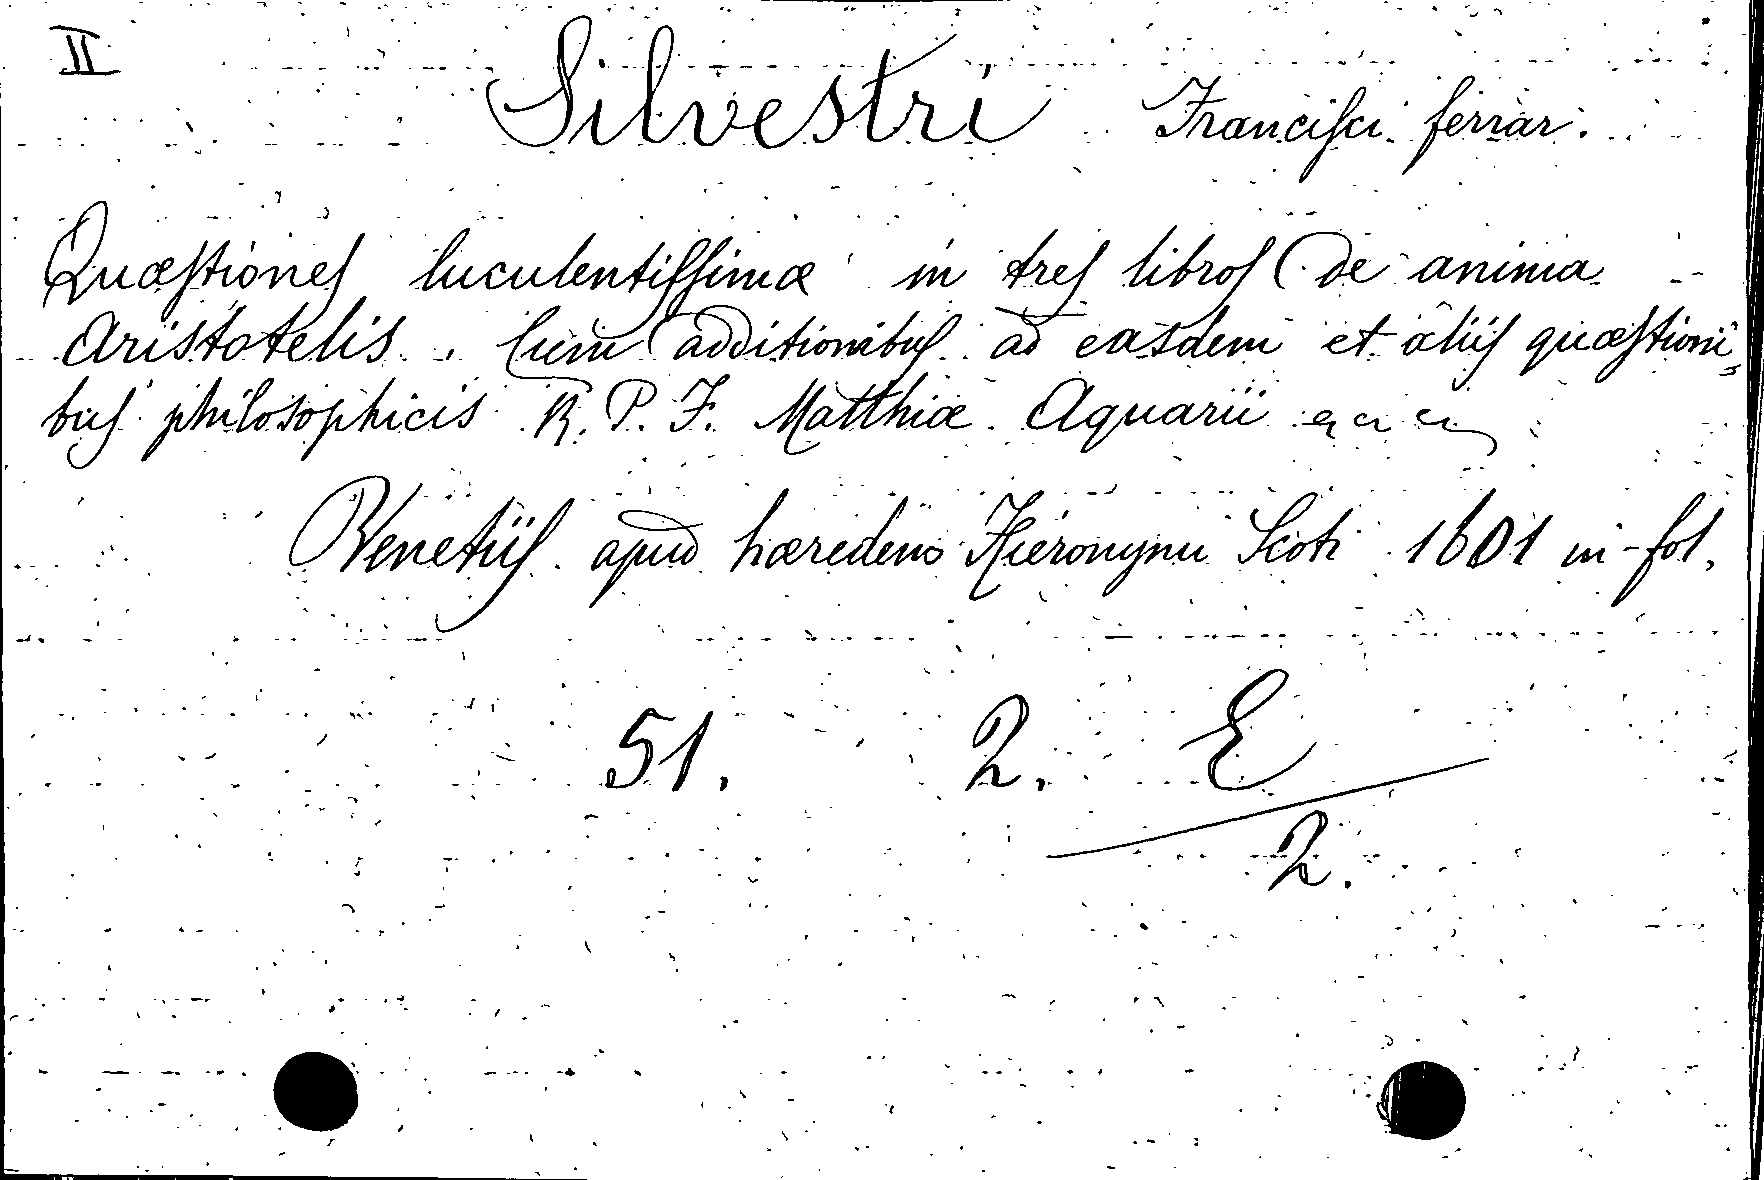 II
Silvestri Francisci ferrar.
Quæstiones luculentissimæ in tres libros de anima
Aristotelis. Cum additionibus ad easdem et aliis quæstioni=
bus philosophicis R. P. F. Matthiæ Aquarii
Venetiis apud hæredens Hieronymi Scoti 1601 in-fol.
51. 2. E
2.